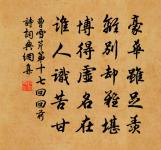 豪華雖足羨
離別却難堪
博得虛名在
誰人識苦甘
曹雪芹第十七回回前
詩詞典網集